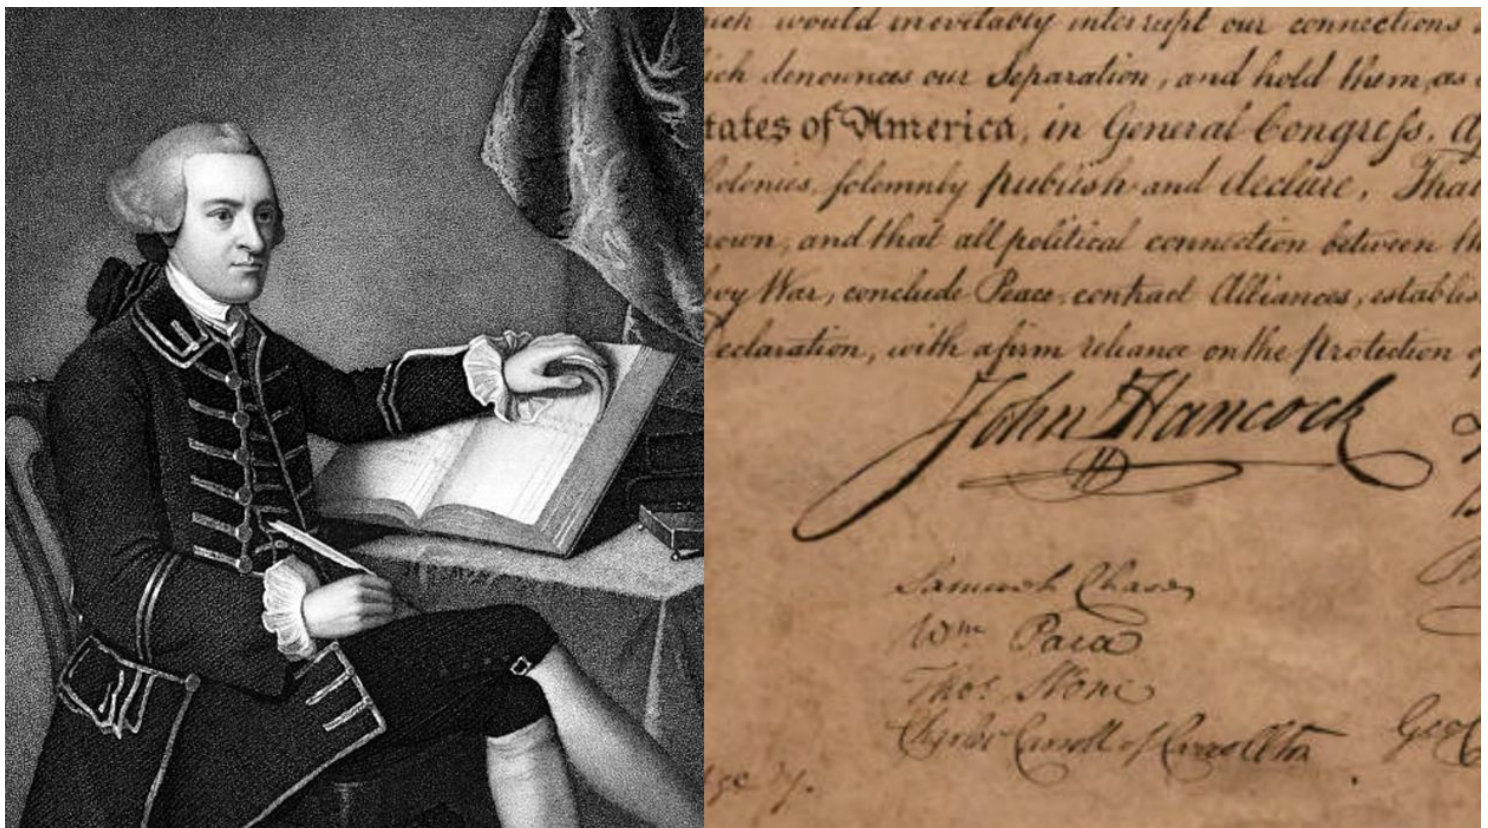 ich would inevitably interrupt our connections
ich denounces our Separation, and hold them, as
tates of America, in General Congress,
Colonies, solemnly publish and declare, That
rown, and that all political connection between th
evy War, conclude Peace, contract Alliances, establis
Declaration, with a firm reliance on the protection
John Hancock
Samuel Chase
Wm Paca
Thos Stone
Charles Carroll of Carrollton
Geo